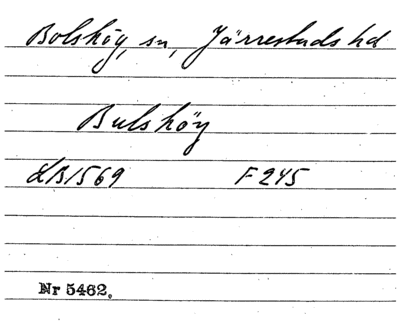 Bolshög, sn, Järrestads hd
Bulshöy
LB1569 F245
Nr 5462.